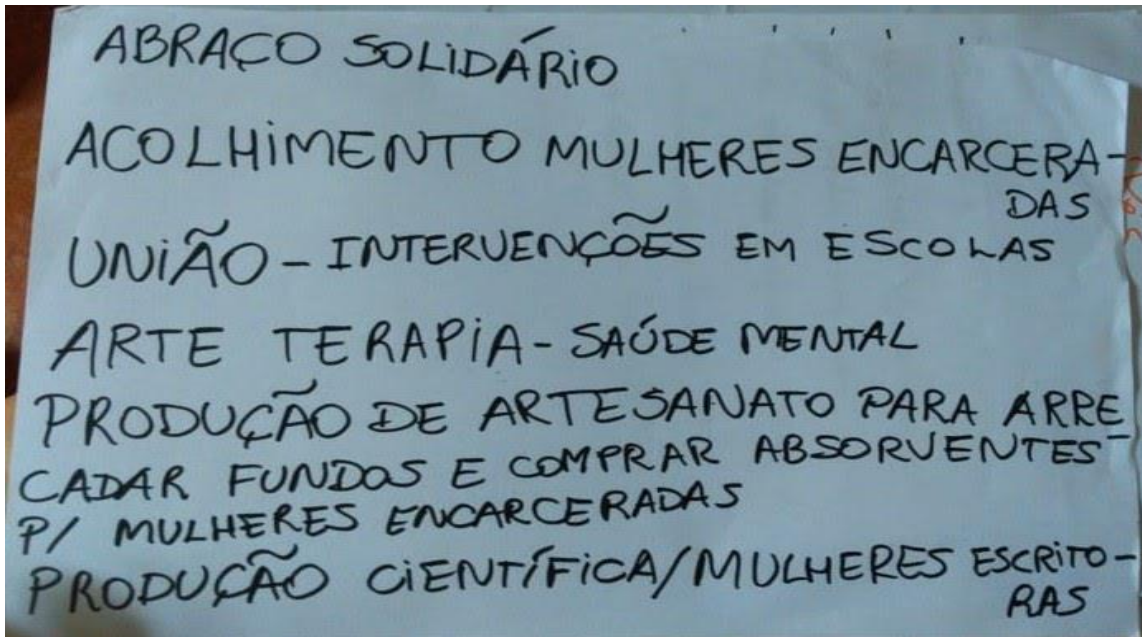 ABRAÇO SOLIDÁRIO
ACOLHIMENTO MULHERES ENCARCERA-
DAS
UNIÃO - INTERVENÇÕES EM ESCOLAS
ARTE TERAPIA - SAÚDE MENTAL
PRODUÇÃO DE ARTESANATO PARA ARRE-
CADAR FUNDOS E COMPRAR ABSORVENTES
P/ MULHERES ENCARCERADAS
PRODUÇÃO CIENTÍFICA/MULHERES ESCRITO-
RAS